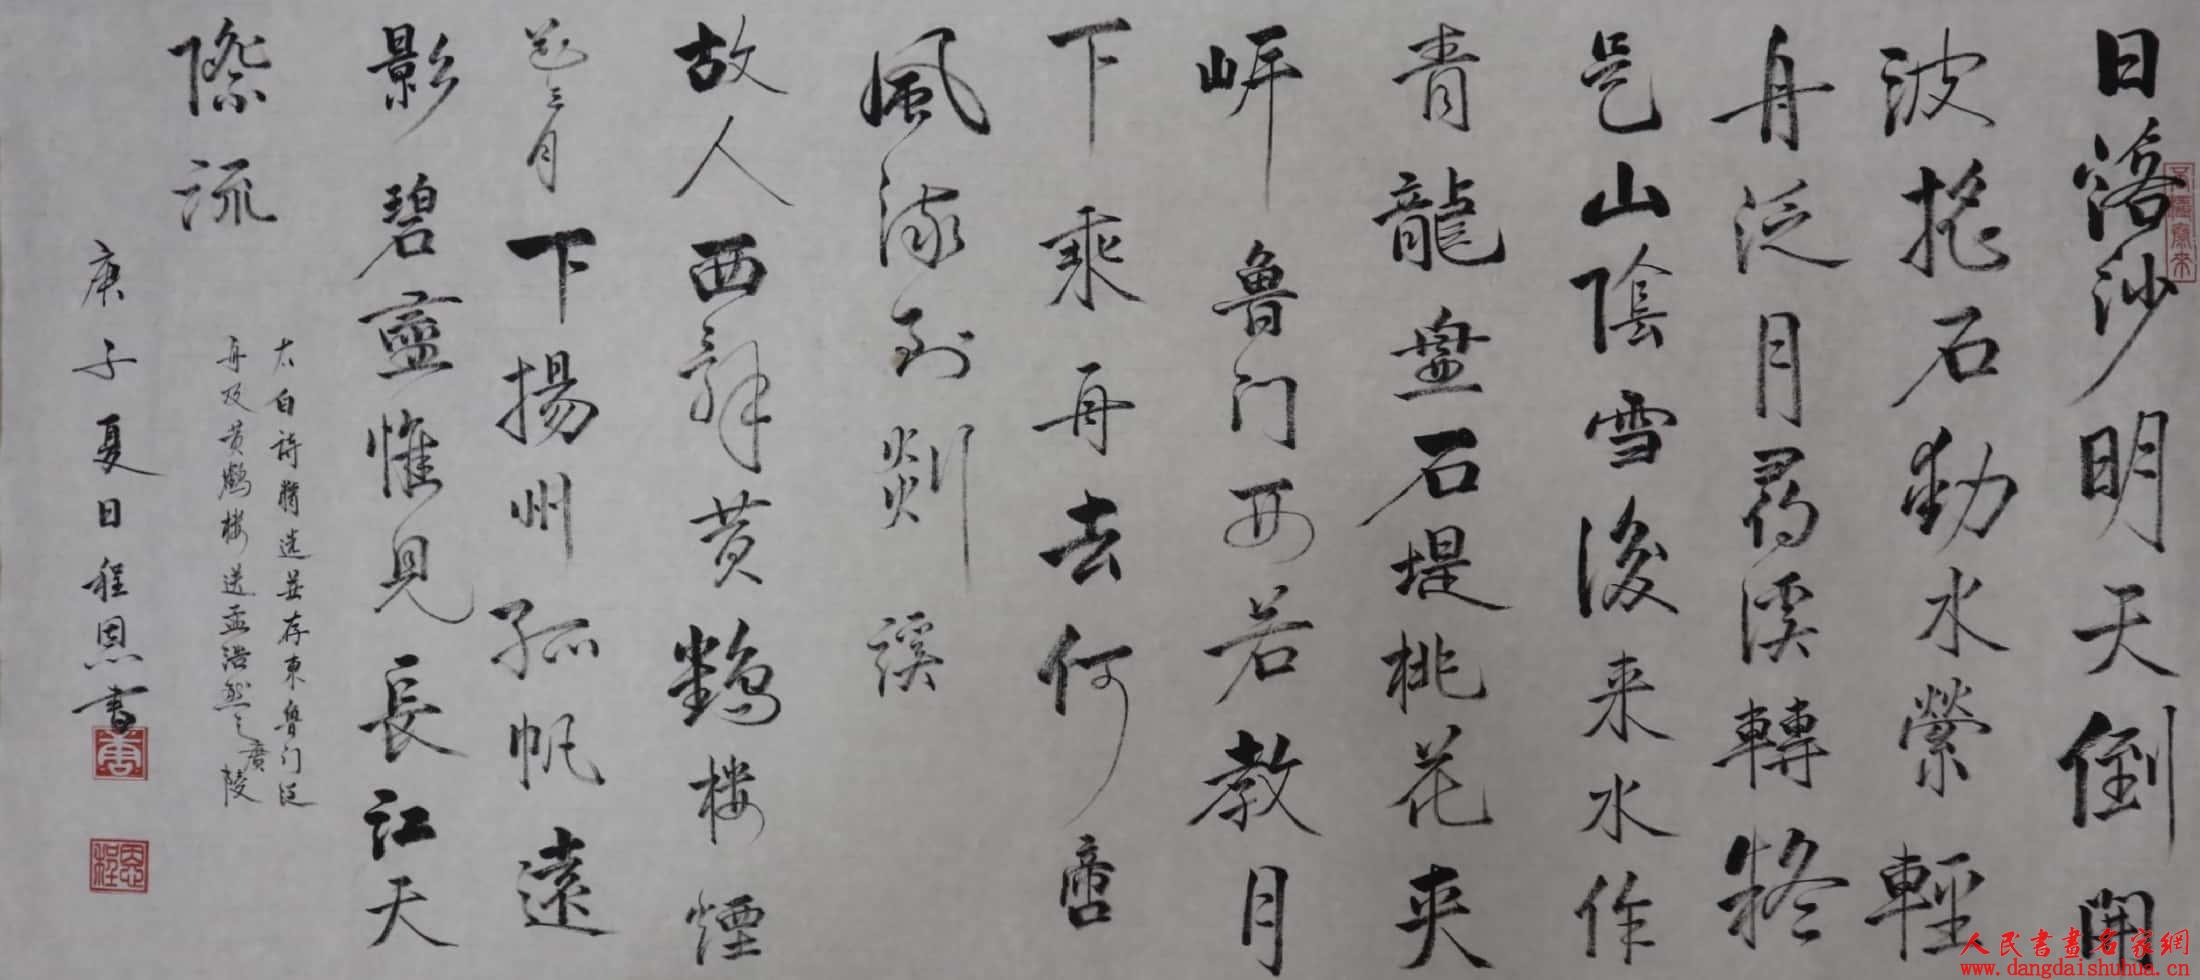 日落沙明天倒開
波搖石動水縈輕
舟泛月尋溪轉疑
是山陰雪後来水作
青龍盤石堤桃花夾
岸魯门西若教月
下乘舟去何啻
風流到剡溪
故人西辭黄鶴楼煙
花三月下揚州孤帆遠
影碧盡惟見長江天
際流
太白詩 選並存東魯门泛
舟及黄鶴楼送孟浩然之廣陵
庚子夏日程恩書
人民書畫名家網
www.dangdaishuhua.cn